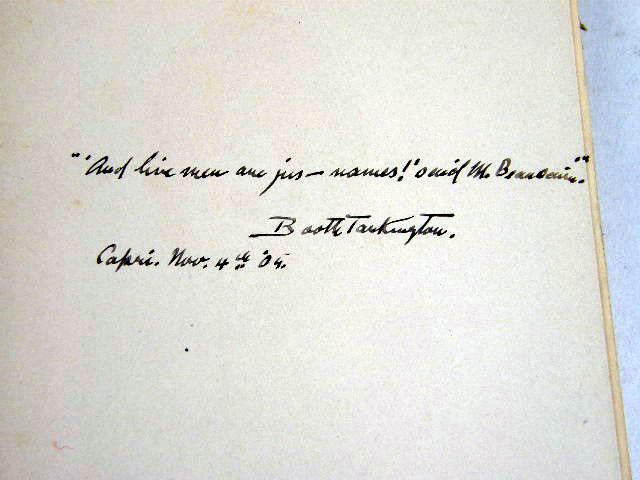 "'And live men are jus— names!' said M. Beaucaire."
Booth Tarkington.
Capri. Nov. 4th '05.